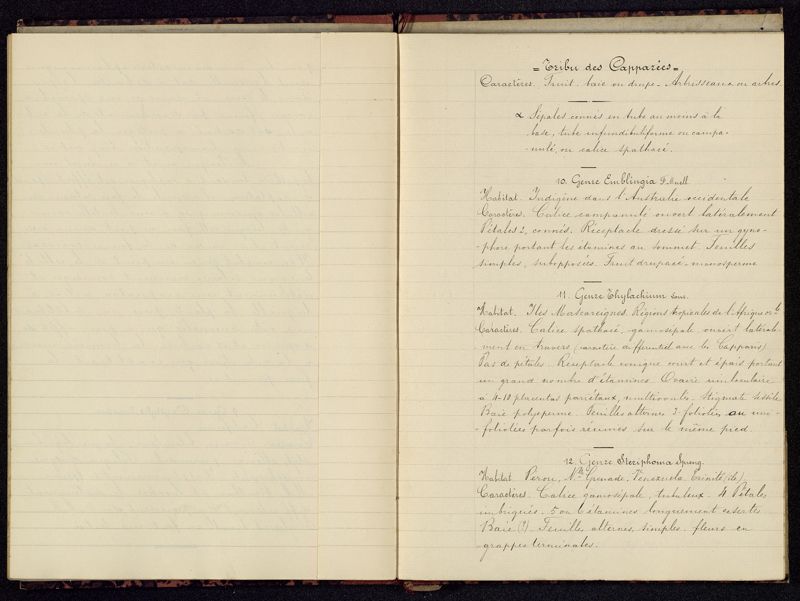 = Tribu des Capparées =
Caractères. Fruit. baie ou drupe - Arbrisseaux ou arbres
α Sépales connés en tube au moins à la
base, tube infundibuliforme ou campa-
nulé, ou calice spathacé.
10. Genre Emblingia F. Muell
Habitat. Indigène dans l'Australie occidentale
Caractères. Calice campanulé ouvert latéralement
Pétales 2, connés. Réceptacle dressé sur un gyno-
phore portant les étamines au sommet. Feuilles
simples, subopposées. Fruit drupacé - monosperme
11. Genre Thylachium Lour.
Habitat. Iles Mascareignes. Régions tropicales de l'Afrique orle
Caractères. Calice spathacé, gamosépale ouvert latérale-
ment en travers (caractère différentiel avec les Capparis)
Pas de pétales. Réceptacle conique court et épais portant
un grand nombre d'étamines. Ovaire uniloculaire
à 4-10 placentas pariétaux, multiovulés. Stigmate sessile
Baie polysperme. Feuilles alternes 3-foliolées ou uni-
foliolées parfois réunies sur le même pied.
12. Genre Steriphoma Spreng.
Habitat. Pérou, Nlle Grenade, Vénézuela, Trinité (île)
Caractères. Calice gamosépale, tubuleux. 4 Pétales
imbriqués. 5 ou 6 étamines longuement exsertes
Baie (?). Feuilles alternes, simples. fleurs en
grappes terminales.